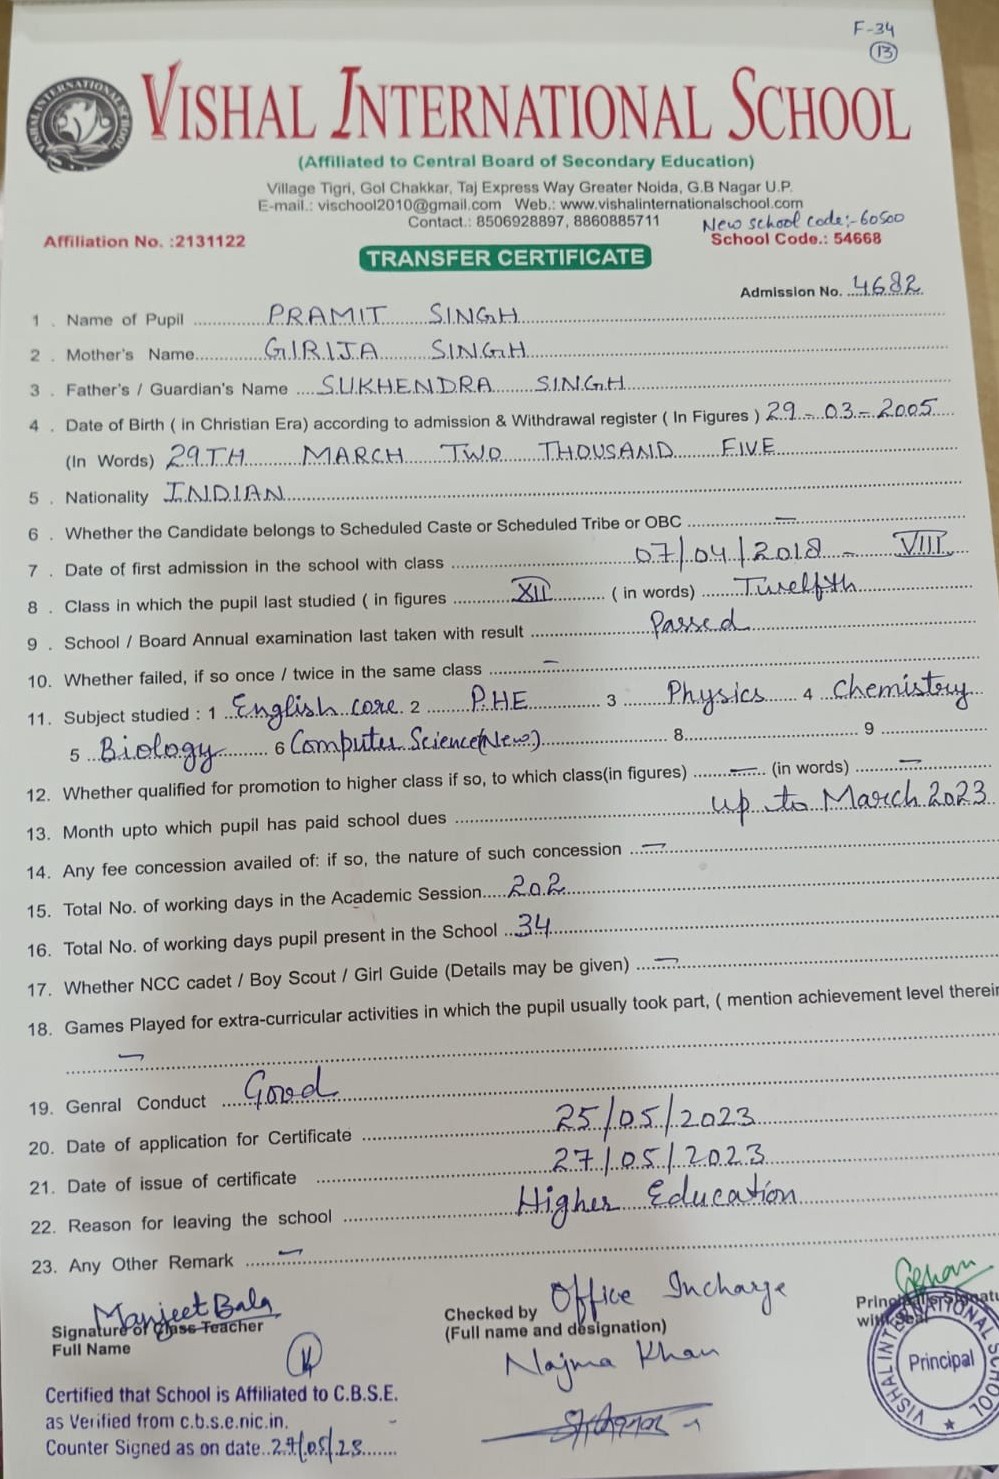 F-34
13
VISHAL INTERNATIONAL SCHOOL
(Affiliated to Central Board of Secondary Education)
Village Tigri, Gol Chakkar, Taj Express Way Greater Noida, G.B Nagar U.P.
E-mail.: vischool2010@gmail.com Web.: www.vishalinternationalschool.com
Contact.: 8506928897, 8860885711
New school code:- 60500
Affiliation No. :2131122 School Code.: 54668
TRANSFER CERTIFICATE
Admission No. 4682
1 . Name of Pupil PRAMIT SINGH
2 . Mother's Name GIRIJA SINGH
3 . Father's / Guardian's Name SUKHENDRA SINGH
4 . Date of Birth ( in Christian Era) according to admission & Withdrawal register ( In Figures ) 29-03-2005
(In Words) 29TH MARCH TWO THOUSAND FIVE
5 . Nationality INDIAN
6 . Whether the Candidate belongs to Scheduled Caste or Scheduled Tribe or OBC —
7 . Date of first admission in the school with class 07/04/2018 - VIII
8 . Class in which the pupil last studied ( in figures XII ( in words) Twelfth
9 . School / Board Annual examination last taken with result Passed
10. Whether failed, if so once / twice in the same class —
11. Subject studied : 1 English core 2 P.HE 3 Physics 4 Chemistry
5 Biology 6 Computer Science(New) 8 9
12. Whether qualified for promotion to higher class if so, to which class(in figures) — (in words) —
13. Month upto which pupil has paid school dues up to March 2023
14. Any fee concession availed of: if so, the nature of such concession —
15. Total No. of working days in the Academic Session 202
16. Total No. of working days pupil present in the School 34
17. Whether NCC cadet / Boy Scout / Girl Guide (Details may be given) —
18. Games Played for extra-curricular activities in which the pupil usually took part, ( mention achievement level therein
—
19. Genral Conduct Good
20. Date of application for Certificate 25/05/2023
21. Date of issue of certificate 27/05/2023
22. Reason for leaving the school Higher Education
23. Any Other Remark —
Manjeet Bala
Signature of Class Teacher
Full Name
Checked by Office Incharge
(Full name and designation)
Najma Khan
VISHAL INTERNATIONAL SCHOOL
Principal
Certified that School is Affiliated to C.B.S.E.
as Verified from c.b.s.e.nic.in.
Counter Signed as on date